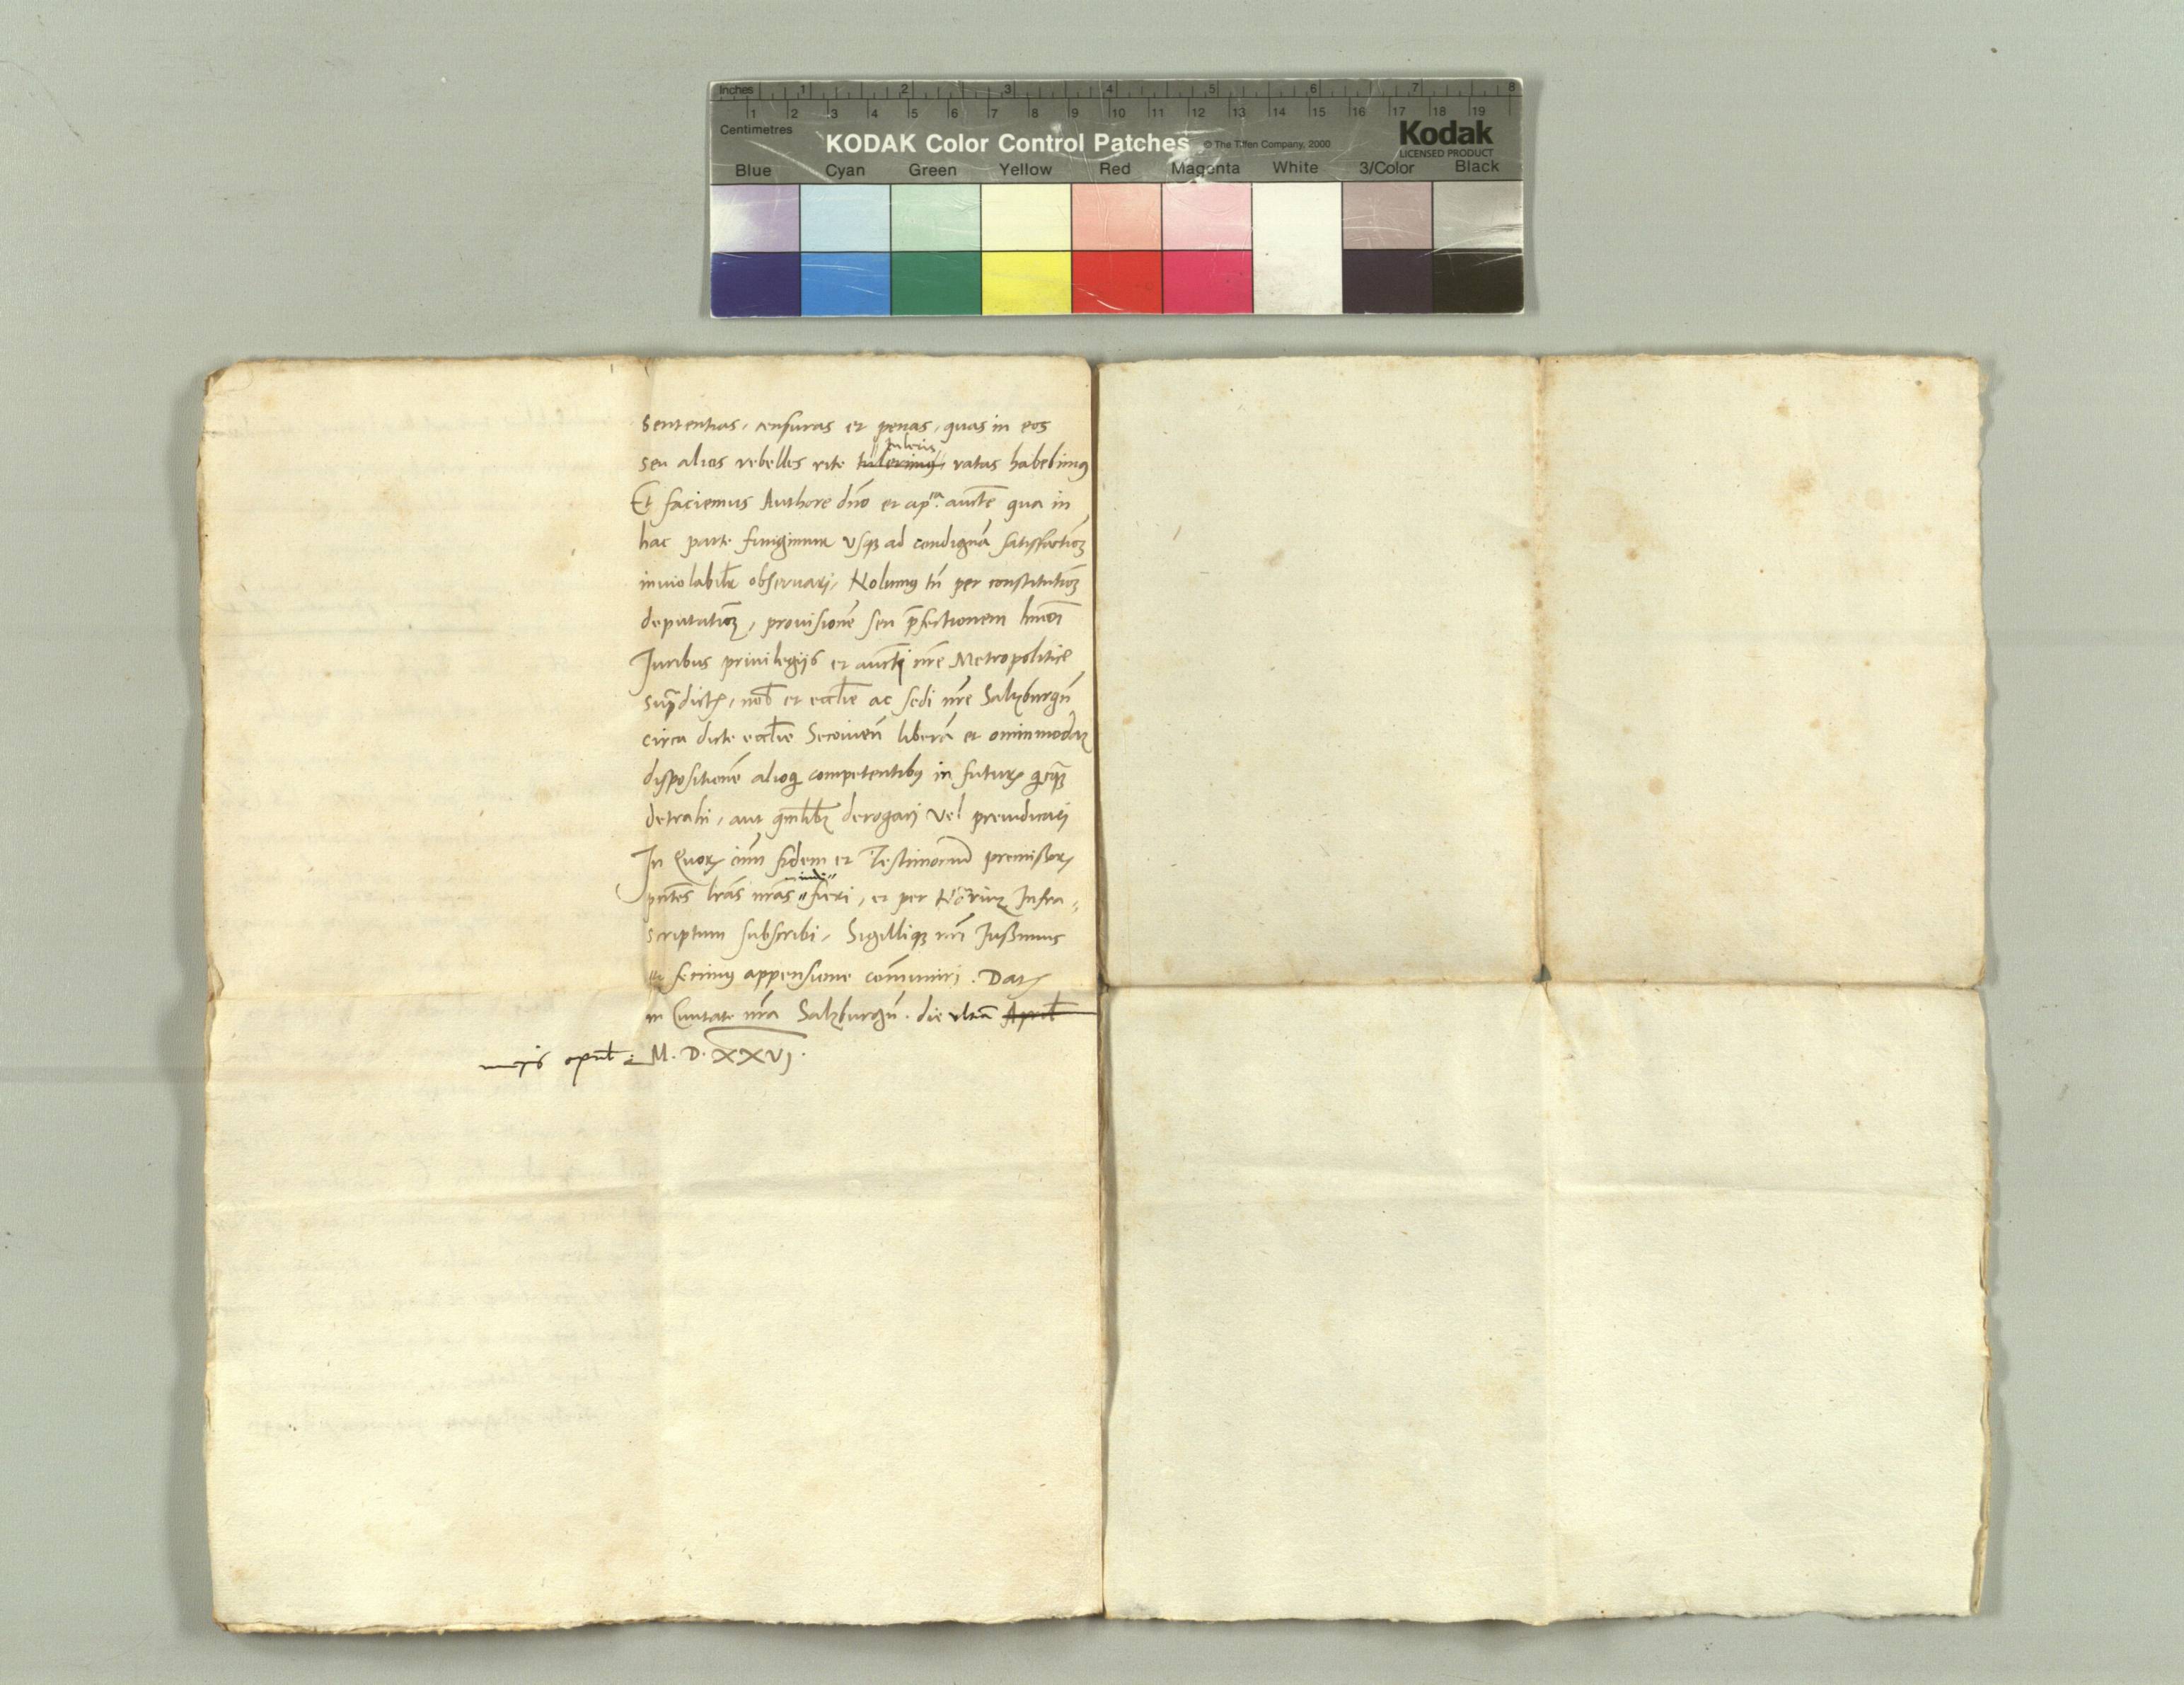 Inches 1 2 3 4 5 6 7 8
1 2 3 4 5 6 7 8 9 10 11 12 13 14 15 16 17 18 19
Centimetres
KODAK Color Control Patches © The Tiffen Company, 2000 Kodak
LICENSED PRODUCT
Blue Cyan Green Yellow Red Magenta White 3/Color Black
sententias, censuras et penas, quas in eos
tuleris
seu alios rebelles rite tulerimꝰ, ratas habebimꝰ
Et faciemus Authore dn̄o et ap.ca auctē qua in
hac parte fungimur vsqꝫ ad condignā satisfactiōꝫ
inuiolabilr̄ obseruari, Nolumꝰ tn̄ per constitutiōꝫ
deputatiōꝫ, prouisionē seu p̄fectionem hmōi
Juribus priuilegijs et auctī nr̄e Metropolitice
sup̄dictꝭ, nob̄ et eccl̄ie ac sedi nr̄e Salzburgn̄
circa dicte eccl̄ie Secouien̄ liberā et omnimodaꝫ
dispositionē alioqꝫ competentibꝰ in futurꝫ
detrahi, aut derogari vel preiudicari
In Quorꝫ fidem et Testimoniū premissorꝫ
pn̄tes lr̄as nr̄as fieri, et per No̅riuꝫ Infra
scriptum subscribi, Sigilliqꝫ nr̄i Jussimus
et fecimꝰ appensione com̄uniri. Datꝫ
in Ciuitate nr̄a Salzburgn̄. die vltiā April̄
april̄ M. D. XXVJ.